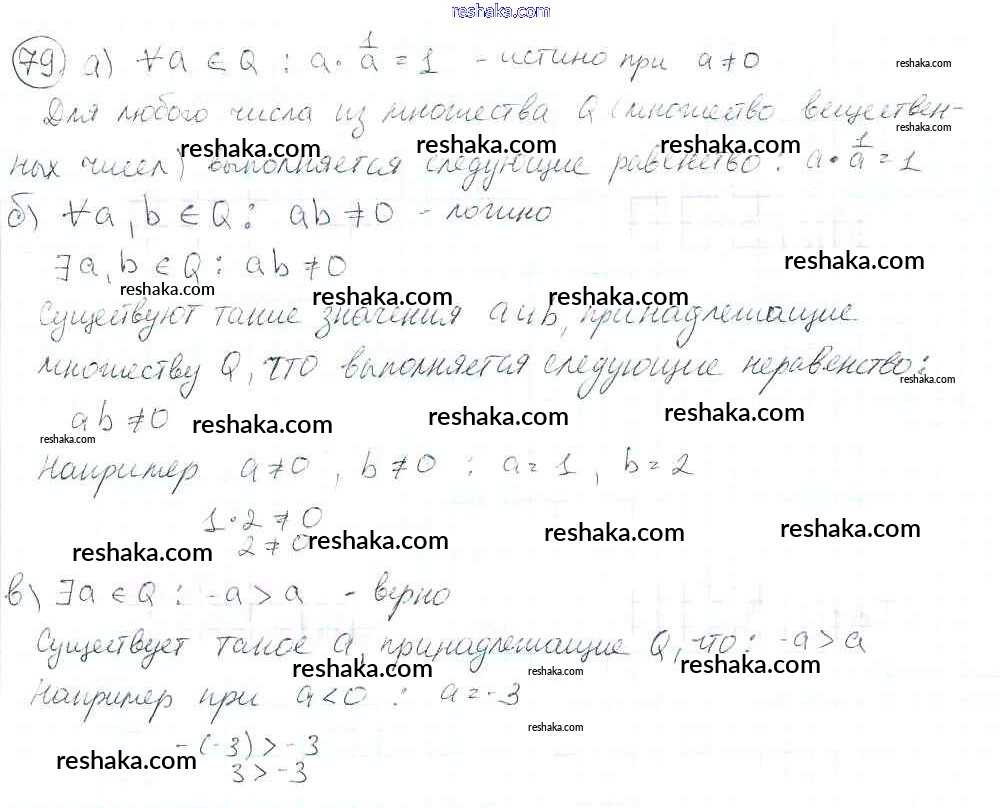 reshaka.com
79) а) ∀a ∈ Q : a · 1/a = 1 - истино при a ≠ 0
reshaka.com
Для любого числа из множества Q (множество веществен-
reshaka.com
ных чисел) выполняется следующие равенство: a · 1/a = 1
reshaka.com reshaka.com reshaka.com
б) ∀a, b ∈ Q : ab ≠ 0 - логино
∃a, b ∈ Q : ab ≠ 0
reshaka.com
reshaka.com reshaka.com reshaka.com
Существуют такие значения a и b, принадлежащие
множеству Q, что выполняется следующие неравенство:
reshaka.com
ab ≠ 0
reshaka.com reshaka.com reshaka.com
reshaka.com
Например a ≠ 0, b ≠ 0 : a = 1, b = 2
1 · 2 ≠ 0
reshaka.com reshaka.com
2 ≠ 0
reshaka.com reshaka.com
в) ∃a ∈ Q : -a > a - верно
Существует такое a, принадлежащие Q, что: -a > a
reshaka.com reshaka.com reshaka.com
Например при a < 0 : a = -3
reshaka.com
-(-3) > -3
reshaka.com
3 > -3